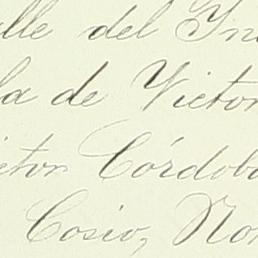 alle del In
la de Victor
ictor Córdoba
Cosio, Nor